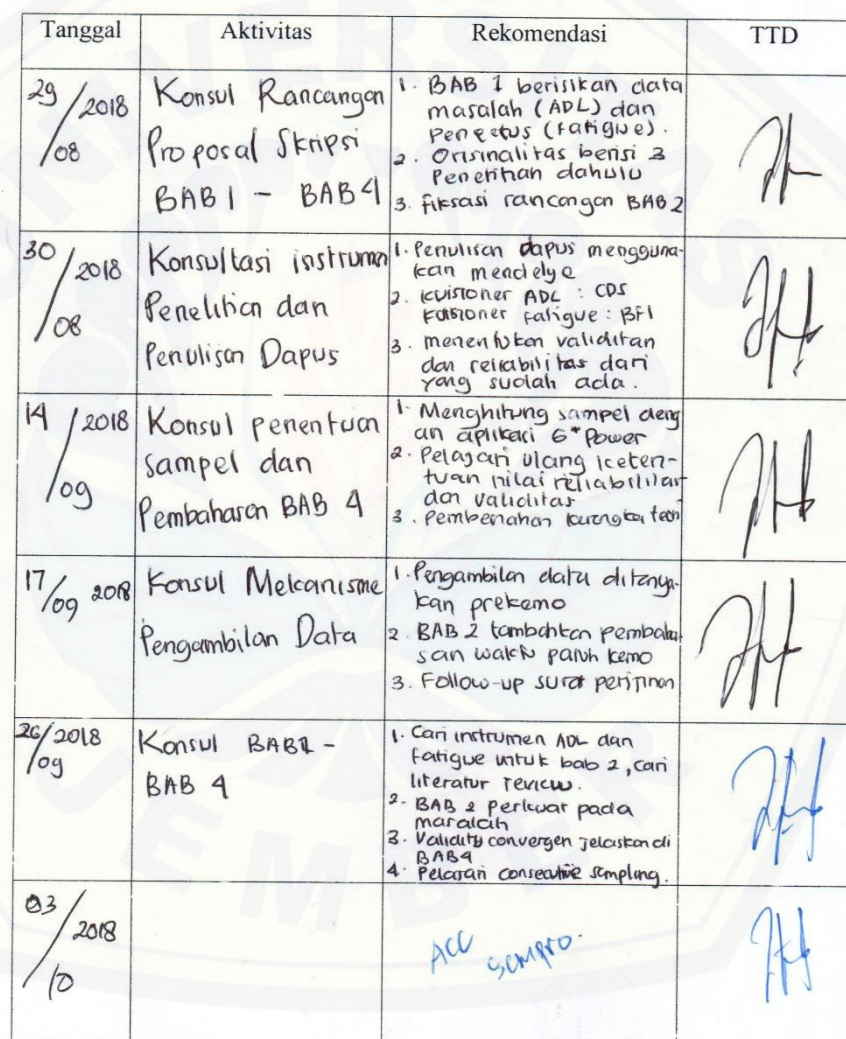 Tanggal Aktivitas Rekomendasi TTD
29/08 2018
Konsul Rancangan
Proposal Skripsi
BAB 1 - BAB 4
1. BAB 1 berisikan data
masalah (ADL) dan
Pencetus (Fatigue).
2. Orisinalitas berisi 3
Penelitian dahulu
3. fiksasi rancangan BAB 2
30/08 2018
Konsultasi instrumen
Penelitian dan
Penulisan Dapus
1. Penulisan dapus mengguna-
kan mendelye
2. kuisioner ADL : CDS
kuisioner Fatigue : BFI
3. menentukan validitan
dan reliabilitas dari
yang sudah ada.
14/09 2018
Konsul penentuan
sampel dan
Pembaharan BAB 4
1. Menghitung sampel deng
an aplikasi G*Power
2. Pelajari ulang keten-
tuan nilai reliabilitas
dan validitas
3. Pembenahan kerangka teori
17/09 2018
Konsul Mekanisme
Pengambilan Data
1. Pengambilan data ditanya-
kan prekemo
2. BAB 2 tambahkan pembaha-
san waktu paruh kemo
3. Follow-up surat perijinan
26/09 2018
Konsul BAB1 -
BAB 4
1. Cari instrumen ADL dan
Fatigue untuk bab 2, cari
literatur review.
2. BAB 2 perkuat pada
masalah
3. Validity convergen jelaskan di
BAB4
4. Pelajari consecutive sampling.
03/10 2018
ACC sempro.
UNIVERSITAS
JEMBER